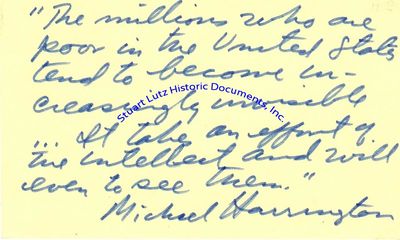 "The millions who are
poor in the United States
tend to become in-
creasingly invisible
Stuart Lutz Historic Documents, Inc.
... It take an effort of
the intellect and will
even to see them."
Michael Harrington